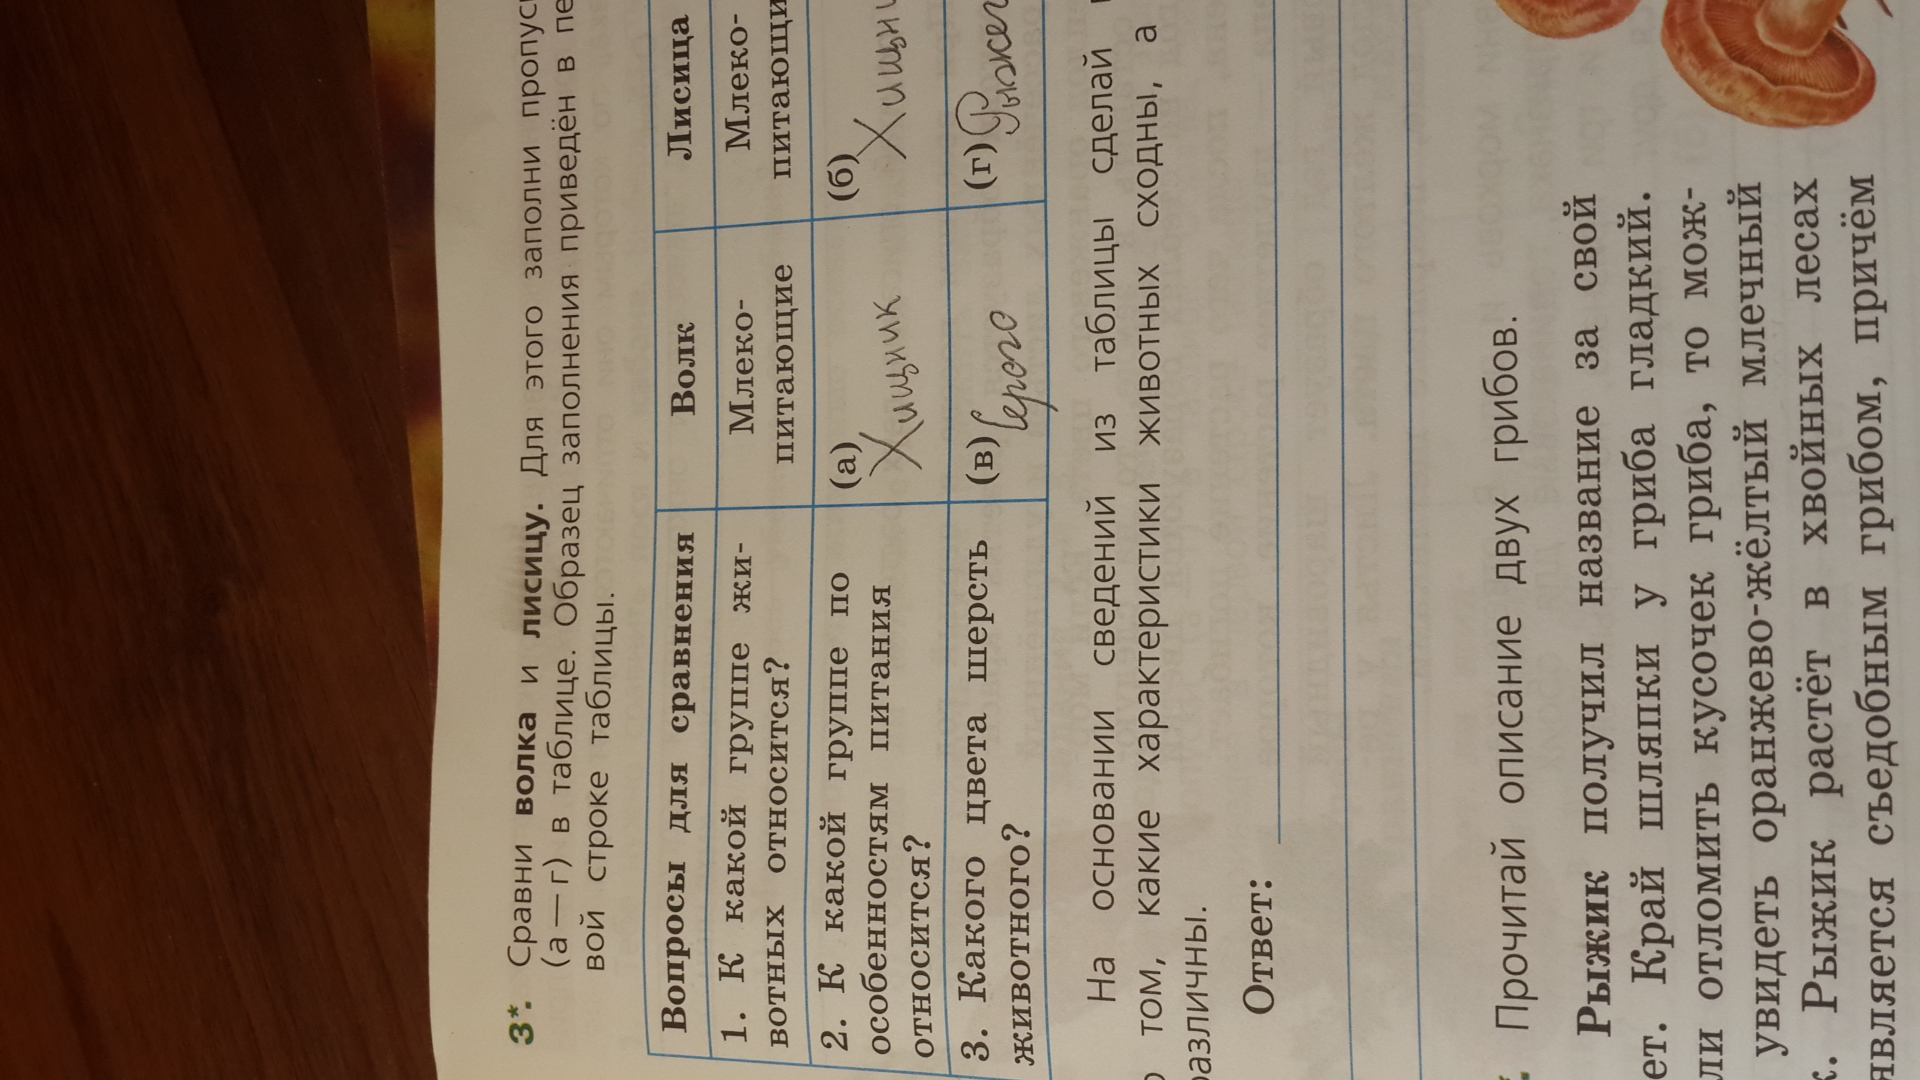 3*. Сравни волка и лисицу. Для этого заполни
(а—г) в таблице. Образец заполнения приведён в
вой строке таблицы.
Вопросы для сравнения Волк Лисица
1. К какой группе жи- Млеко- Млеко-
вотных относится? питающие
2. К какой группе по (а) (б)
особенностям питания Хищник
относится?
3. Какого цвета шерсть (в) Серого (г)
животного?
На основании сведений из таблицы сделай
том, какие характеристики животных сходны, а
различны.
Ответ:
Прочитай описание двух грибов.
Рыжик получил название за свой
Край шляпки у гриба гладкий.
отломить кусочек гриба, то мож-
увидеть оранжево-жёлтый млечный
Рыжик растёт в хвойных лесах
является съедобным грибом, причём